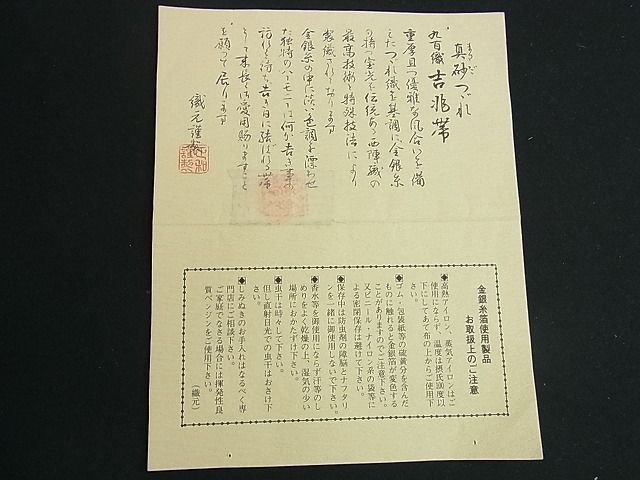 真砂つづれ
まさご
九百織 吉兆帯
重厚且つ優雅な風合いを備
えたつづれ織を基調に金銀糸
の持つ宝光を伝統ある西陣織の
最高技術と特殊技法により
製織されております
金銀糸の中に淡い色調を漂わせ
た独特のハーモニーは何か吉き事の
訪れを待ち吉き日に結ばれる帯
として末長く御愛用賜りますこと
を願って居ります
織元謹製
金銀糸箔使用製品
お取扱上のご注意
◆高熱アイロン、蒸気アイロンはご
使用にならず、温度は摂氏100度以
下にしてあて布の上からご使用下
さい。
◆ゴム・包装紙等の硫黄分を含んだ
ものに触れると金銀箔が変色する
ことがありますのでご注意下さい。
又ビニール・ナイロン系の袋等に
よる密閉保存は避けて下さい。
◆保存中は防虫剤の障脳とナフタリ
ンを一緒に御使用しないで下さい。
◆香水等を御使用にならず汗等のし
めりをよく乾燥の上、湿気の少い
場所におかたずけ下さい。
◆虫干は時々して下さい。
但し直射日光での虫干はおさけ下
さい。
◆しみぬきのお手入れはなるべく専
門店にご相談下さい。
ご家庭でなさる場合には揮発性良
質ベンジンをご使用下さい。
（織元）